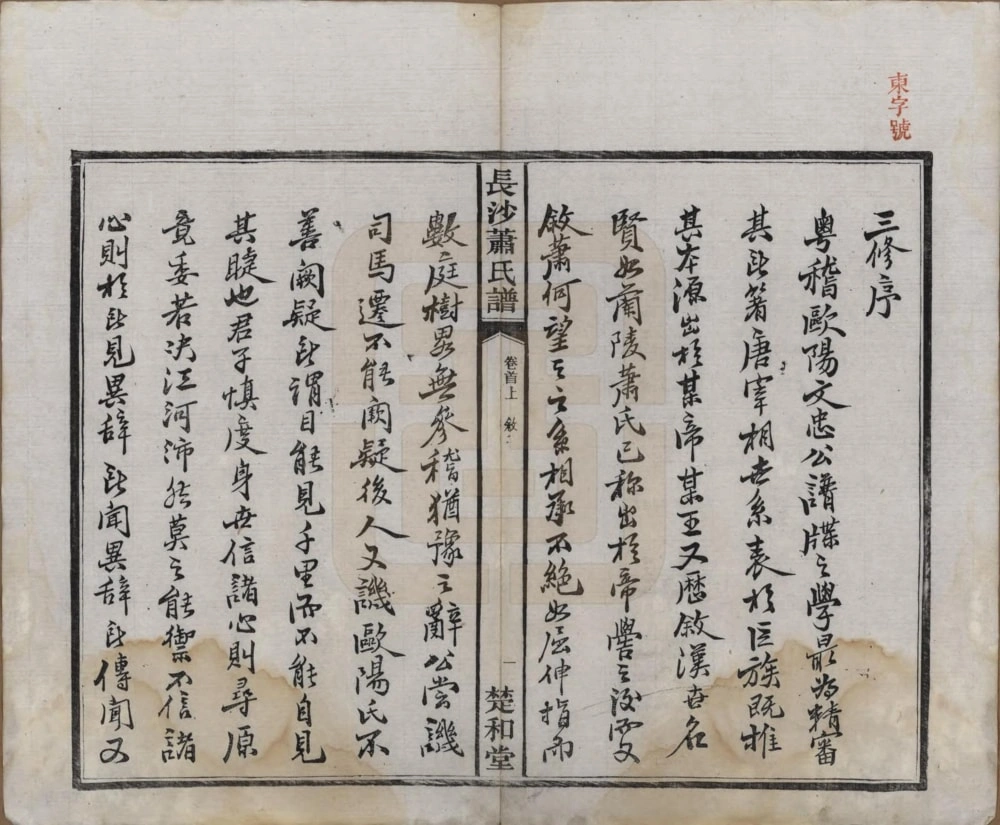 東字號
三修序
粵稽歐陽文忠公譜牒之學最為精審
其所著唐宰相世系表於巨族既推
其本源出於某帝某王又歷敘漢世名
賢如蘭陵蕭氏已称出於帝嚳之後而又
敘蕭何望之之系相承不絕如屈伸指而
長沙蕭氏譜
卷首上
敘
一
楚和堂
數庭樹畧無參稽猶豫之辭公嘗譏
司馬遷不能闕疑後人又譏歐陽氏不
善闕疑所謂目能見千里而不能自見
其睫也君子慎度身世信諸心則尋原
竟委若决江河沛然莫之能禦不信諸
心則於所見異辞所聞異辞所傳聞又